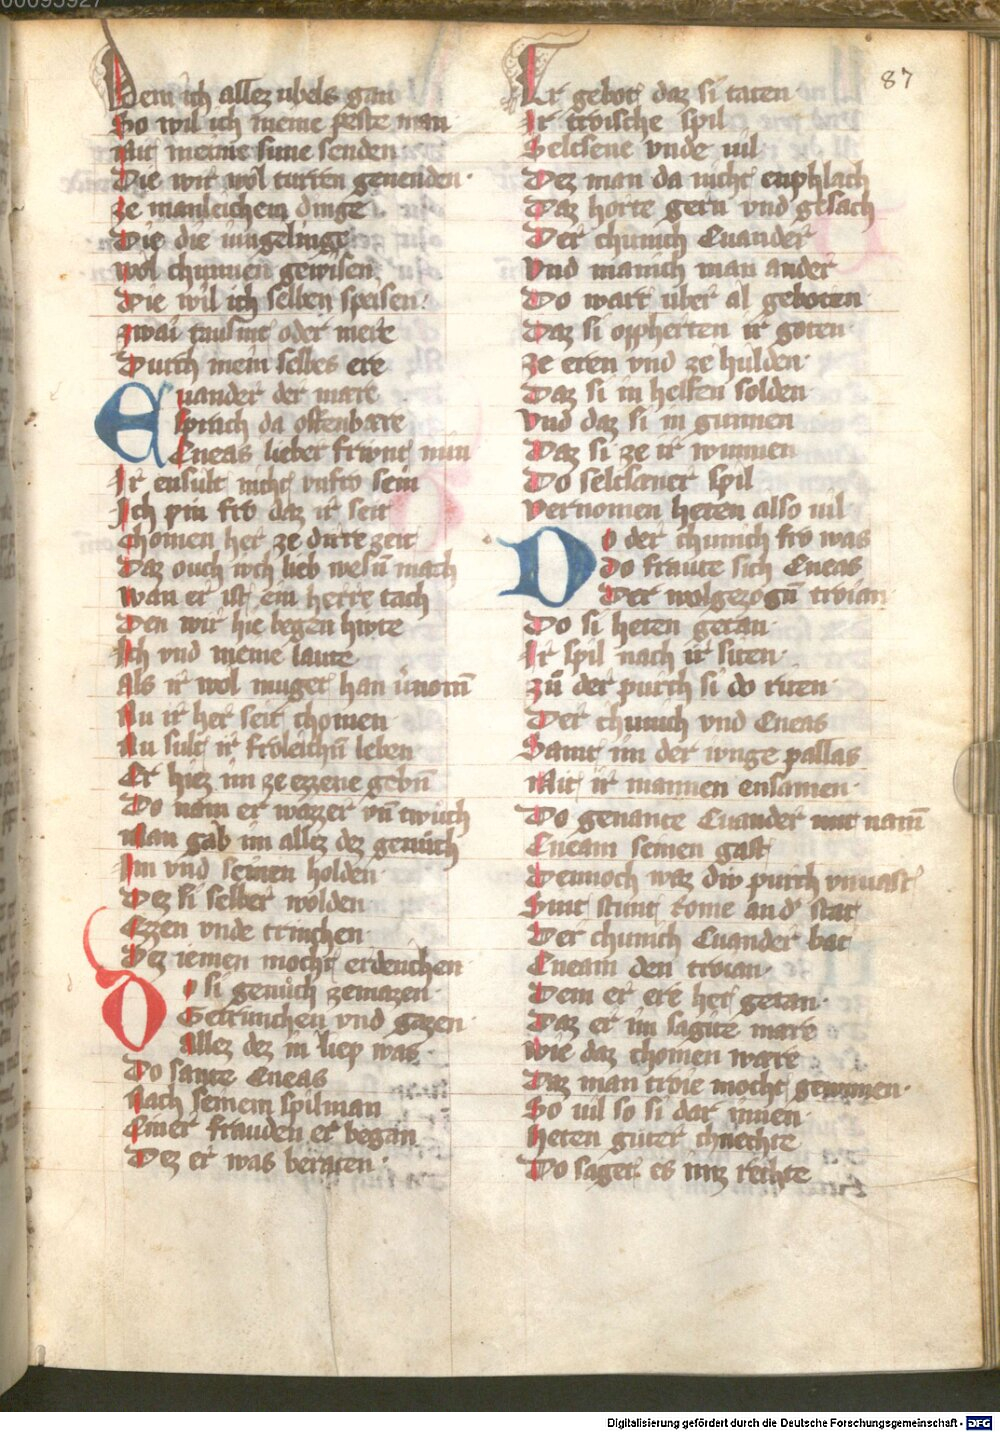 87
Dem ich allez ubels gan
So wil ich meine peste man
Mit meine sune senden
Die wir wol turren genenden·
ze manleichem dinge
Die die iungelinge
wol chunnen gewisen
Die wil ich selben speisen·
zwai tausint oder mere
Durch mein selbes ere
Euander der mare
sprach da offenbare
Eneas lieber friwnt min
Ir ensult nicht vnfro sein
Ich pin fro daz ir seit
chomen her ze dirre zeit
Daz ouch iwch lieb wesn̄ mach
wan er ist ein herre tach
Den wir hie begen hiwte
Ich vnd meine laute
Als ir wol muget han v̄nom̄
Nu ir her seit chomen
Nu sult ir froleichn̄ leben
Er hiez im ze ezzene gebn̄
Do nam er wazzer vn̄ twuch
Man gab im allez dez genuch
Im vnd seinen holden
Dez si selber wolden
Ezzen vnde trinchen
Dez iemen mocht erdenchen
Do si genuch zemazen·
Getrunchen vnd gazen·
allez dez in liep was·
Do sante Eneas
Nach seinem spilman
Einer frauden er began
Dez er was beraten·
Er gebot daz si taten·
Ir troische spil
Seltsene vnde uil
Dez man da nicht enphlach
Daz horte gern vnd gesach
Der chunich Euander
Vnd manich man ander
Do wart uber al geboten
Daz si opherten ir goten·
ze eren vnd ze hulden·
Daz si in helfen solden
Vnd daz si in gunnen
Daz si ze ir wunnen
Do seltsaner spil
Vernomen heten also uil
Do der chunich fro was
Do fraute sich Eneas
Der wolgezogn̄ troian·
Do si heten getan·
Ir spil nach ir siten·
zu der purch si do riten·
Der chunich vnd Eneas
Samt im der iunge pallas
Mit ir mannen ensamen·
Do genante Euander mit nam̄
Eneam seinen gast
Dennoch waz diu purch vnuast
Sint stunt Rome an d' stat
Der chunich Euander bat
Eneam den troian·
Dem er ere het getan·
Daz er im sagite mare
wie daz chomen ware
Daz man troie mocht gewinnen·
So uil so si dar innen·
Heten guter chnechte
Do saget es imz rechte
Digitalisierung gefördert durch die Deutsche Forschungsgemeinschaft - DFG